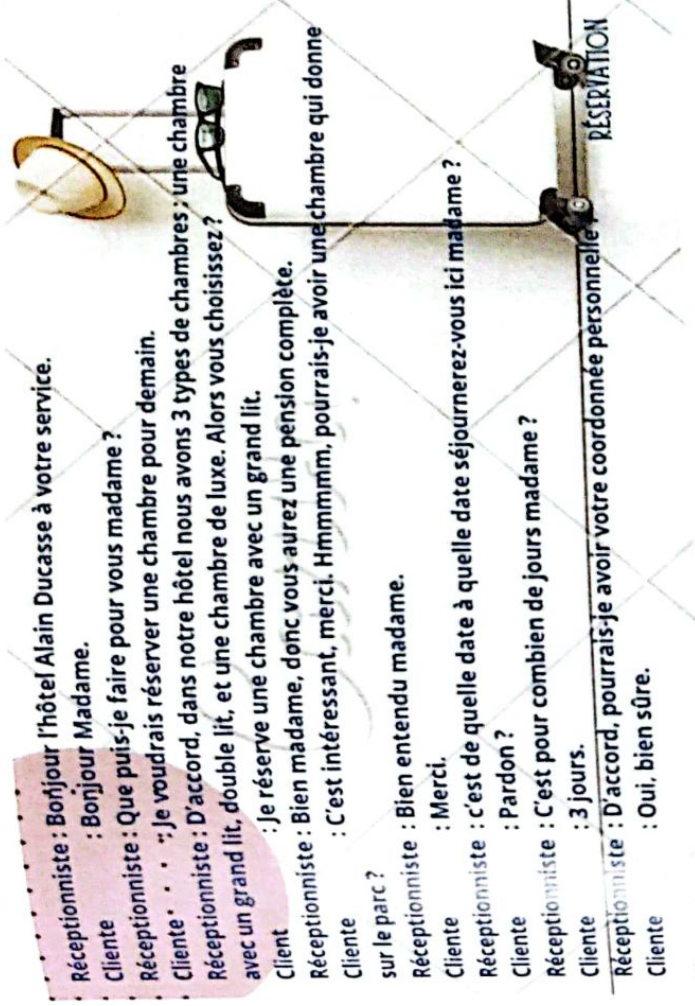 Réceptionniste : Bonjour l'hôtel Alain Ducasse à votre service.
Cliente : Bonjour Madame.
Réceptionniste : Que puis-je faire pour vous madame ?
Cliente : Je voudrais réserver une chambre pour demain.
Réceptionniste : D'accord, dans notre hôtel nous avons 3 types de chambres : une chambre
avec un grand lit, double lit, et une chambre de luxe. Alors vous choisissez ?
Client : Je réserve une chambre avec un grand lit.
Réceptionniste : Bien madame, donc vous aurez une pension complète.
Cliente : C'est intéressant, merci. Hmmmmm, pourrais-je avoir une chambre qui donne
sur le parc ?
Réceptionniste : Bien entendu madame.
Cliente : Merci.
Réceptionniste : c'est de quelle date à quelle date séjournerez-vous ici madame ?
Cliente : Pardon ?
Réceptionniste : C'est pour combien de jours madame ?
Cliente : 3 jours.
Réceptionniste : D'accord, pourrais-je avoir votre coordonnée personnelle ?
Cliente : Oui, bien sûre.
RÉSERVATION